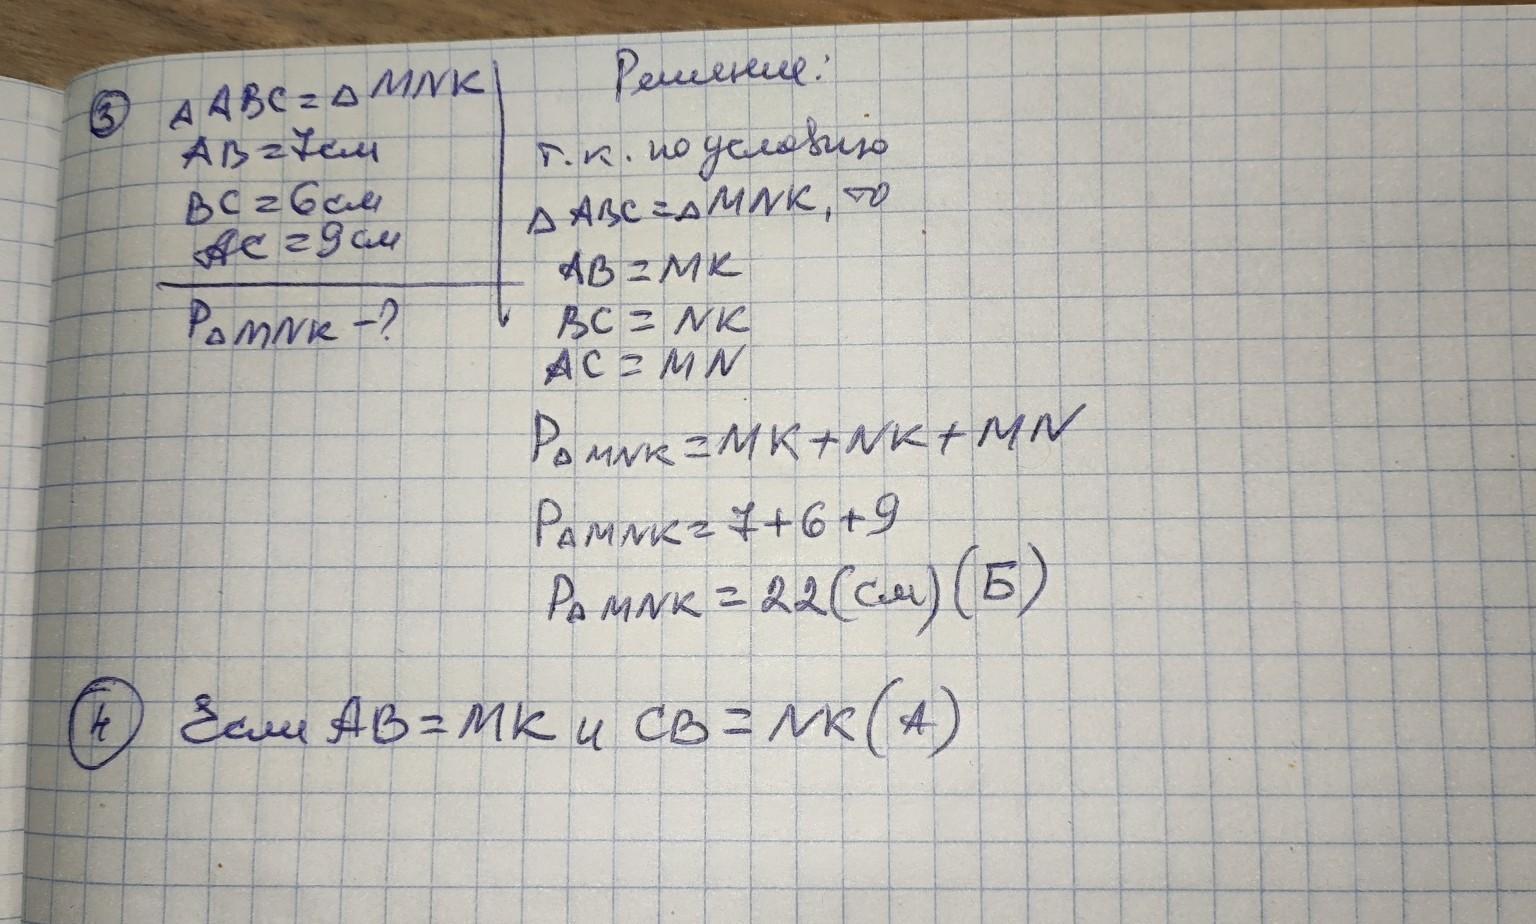 ③ △ABC = △MNK
AB = 7см
BC = 6см
AC = 9см
P△MNK -?
Решение:
т.к. по условию
△ABC = △MNK, то
AB = MK
BC = NK
AC = MN
P△MNK = MK + NK + MN
P△MNK = 7 + 6 + 9
P△MNK = 22 (см) (Б)
④ Если AB = MK и CB = NK (А)